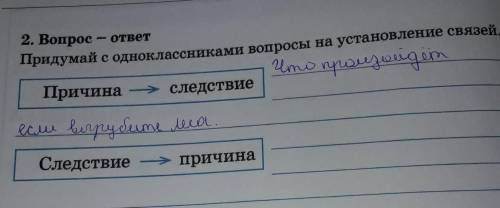 2. Вопрос – ответ
Придумай с одноклассниками вопросы на установление связей,
Причина → следствие
Что произойдёт
если вырубите леса.
Следствие → причина